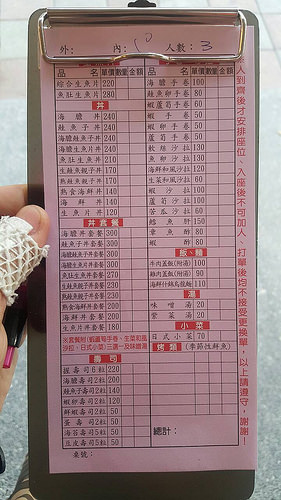 外: 內: 人數: 3
品 名 單價 數量 金額
綜合生魚片 220
魚肚生魚片 280
丼
海膽丼 240
鮭魚子丼 240
海膽鮭魚子丼 240
海膽生魚片丼 240
魚肚生魚片丼 210
生鮭魚親子丼 170
熟鮭魚親子丼 170
熟食海鮮丼 140
海鮮丼 140
生魚片丼 120
丼套餐
海膽丼套餐 300
鮭魚子丼套餐 300
海膽鮭魚子丼套餐 300
海膽生魚片丼套餐 300
魚肚生魚片丼套餐 270
生鮭魚親子丼套餐 230
熟鮭魚親子丼套餐 230
熟食海鮮丼套餐 200
海鮮丼套餐 200
生魚片丼套餐 180
壽司
握壽司6粒 220
海膽壽司2粒 200
鮭魚子壽司2粒 140
蝦卵壽司2粒 120
鮮蝦壽司2粒 50
蛋壽司2粒 50
海苔壽司5粒 50
豆皮壽司5粒 50
桌號:
品 名 單價 數量 金額
海膽手卷 100
鮭魚卵手卷 80
蝦蘆筍手卷 60
蝦手卷 50
蝦卵手卷 50
蘆筍手卷 50
軟絲沙拉 130
魚卵沙拉 130
海鮮和風沙拉 120
生菜和風沙拉 60
蝦沙拉 100
蘆筍沙拉 100
苦瓜沙拉 60
鱈魚肝 150
章魚酢 80
蝦酢 80
飯、麵
牛肉蓋飯(附湯) 100
雞肉蓋飯(附湯) 90
海鮮什錦烏龍麵 110
湯
味噌湯 20
紫菜湯 20
小菜
日式小菜 70
烤類 (季節性鮮魚)
總計:
人到齊後才安排座位、入座後不可加人、打單後均不接受更換單,以上請遵守,謝謝!